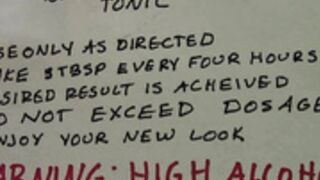 TONIC
SE ONLY AS DIRECTED
KE 3 TBSP EVERY FOUR HOURS
SIRED RESULT IS ACHEIVED
O NOT EXCEED DOSAGE
NJOY YOUR NEW LOOK
ARNING: HIGH ALCOHO